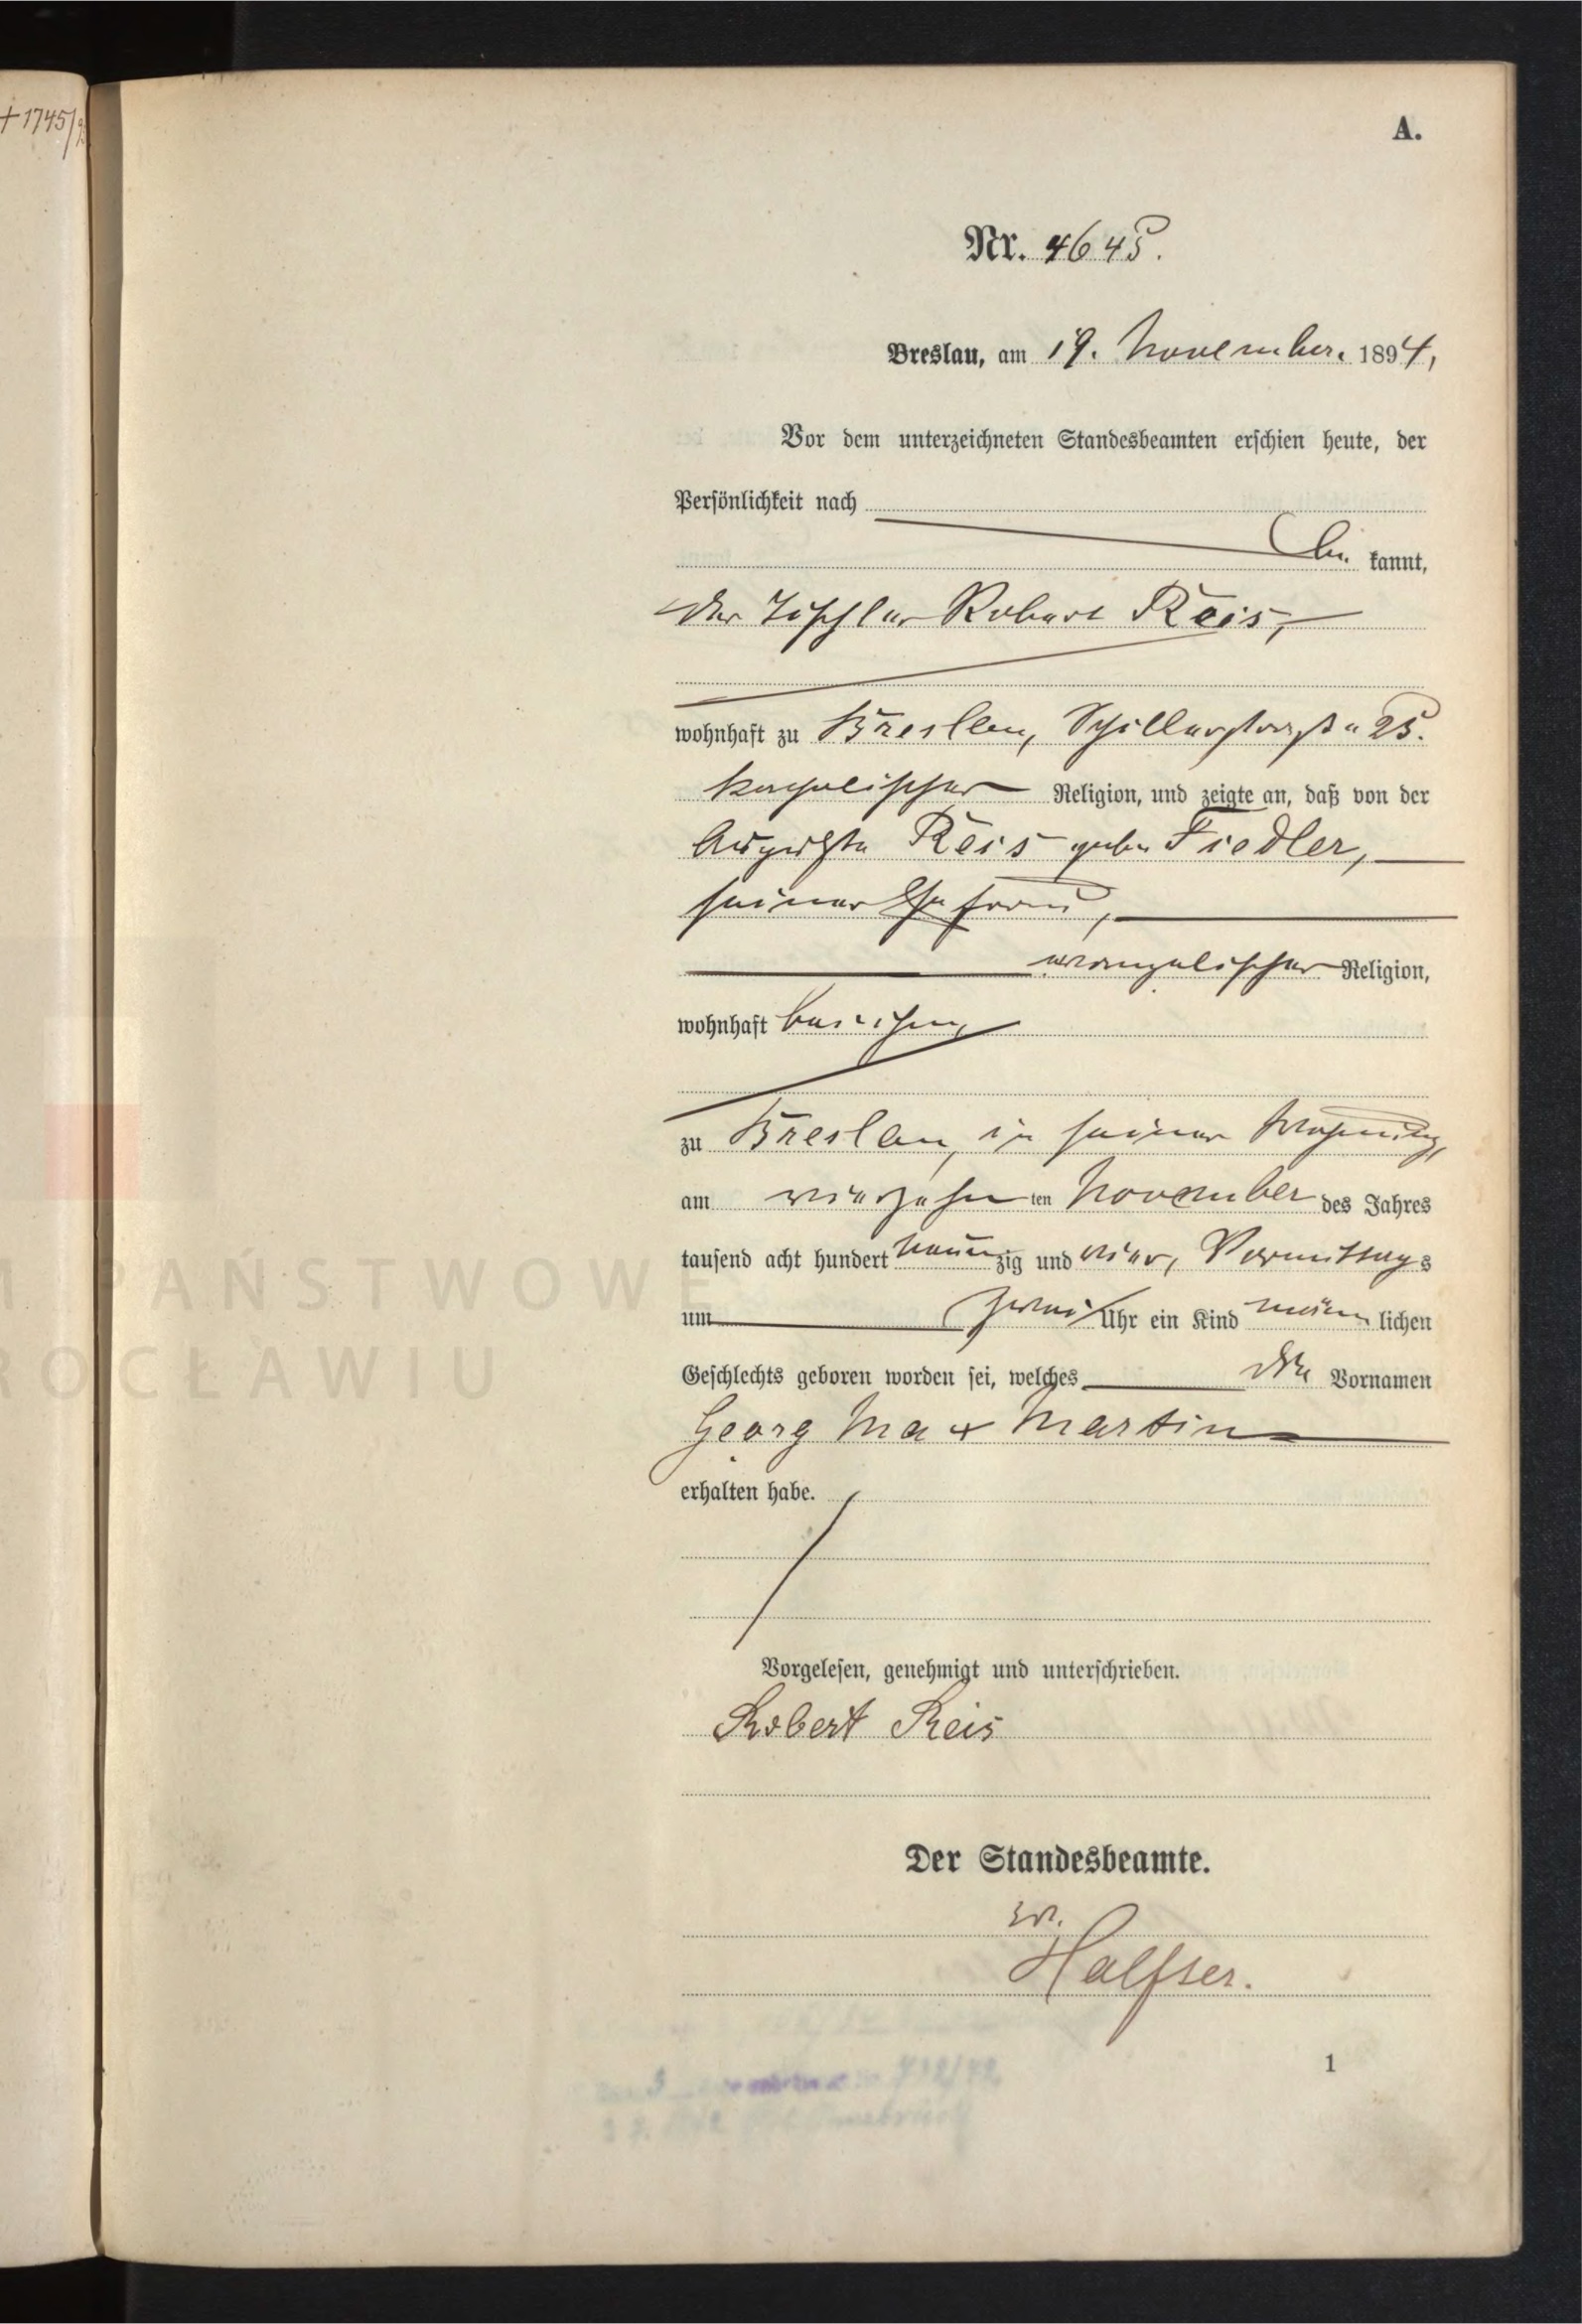 +1745/
A.
Nr. 4645.
Breslau, am 19. November. 1894,
Vor dem unterzeichneten Standesbeamten erschien heute, der
Persönlichkeit nach
be kannt,
der Tischler Robert Reis,
wohnhaft zu Breslau, Schillerstraße 25.
katholischer Religion, und zeigte an, daß von der
Auguste Reis geb. Fiedler,
seiner Ehefrau,
evangelischer Religion,
wohnhaft bei ihm,
zu Breslau, in seiner Wohnung,
am vierzehn ten November des Jahres
tausend acht hundert neun zig und vier, Vormittags
um zwei Uhr ein Kind männ lichen
Geschlechts geboren worden sei, welches die Vornamen
Georg Max Martin
erhalten habe.
Vorgelesen, genehmigt und unterschrieben.
Robert Reis
Der Standesbeamte.
1
PAŃSTWOWE
ROCŁAWIU